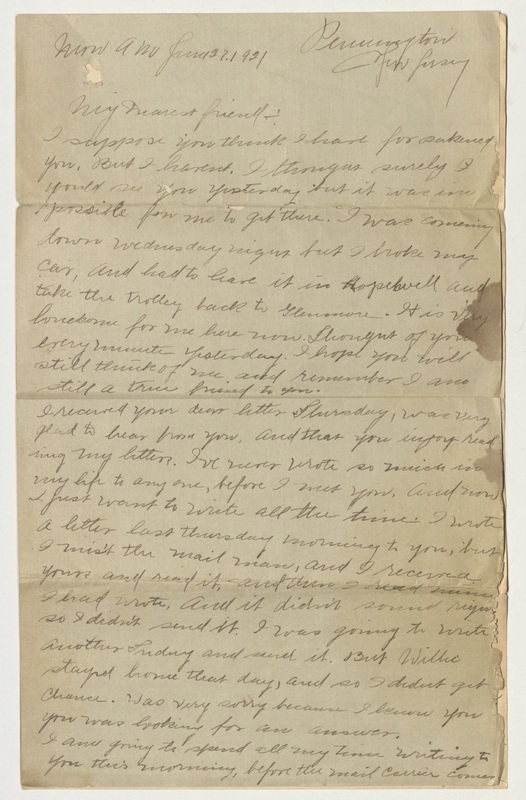 Mon A M June 27. 1921
Pennington
New Jersey
My Dearest friend:
I suppose you think I have for sakened
you, But I havent. I thought surely I
would see you yesterday but it was im
possible for me to get there. I was comeing
down wednesday night but I broke my
Car, and had to leave it in Hopewell and
take the trolley back to Glenmore. It is very
lonesome for me here now. I thought of you
every minute yesterday. I hope you will
still think of me and remember I am
still a true friend to you.
I received your dear letter Thursday, was very
glad to hear from you, and that you injoy read
ing my letters. I've never wrote so much in
my life to any one, before I met you, and now
I just want to write all the time. I wrote
a letter last thursday morning to you, but
I mis't the mail man, and I received
yours and read it, and then I read mine
I had wrote, And it didn't sound right
so I didn't send it. I was going to write
another Friday and send it. But Willie
stayed home that day, and so I didnt get
chance. Was very sorry because I know you
you was looking for an answer.
I am going to spend all my time writing to
you this morning, before the mail carrier comes